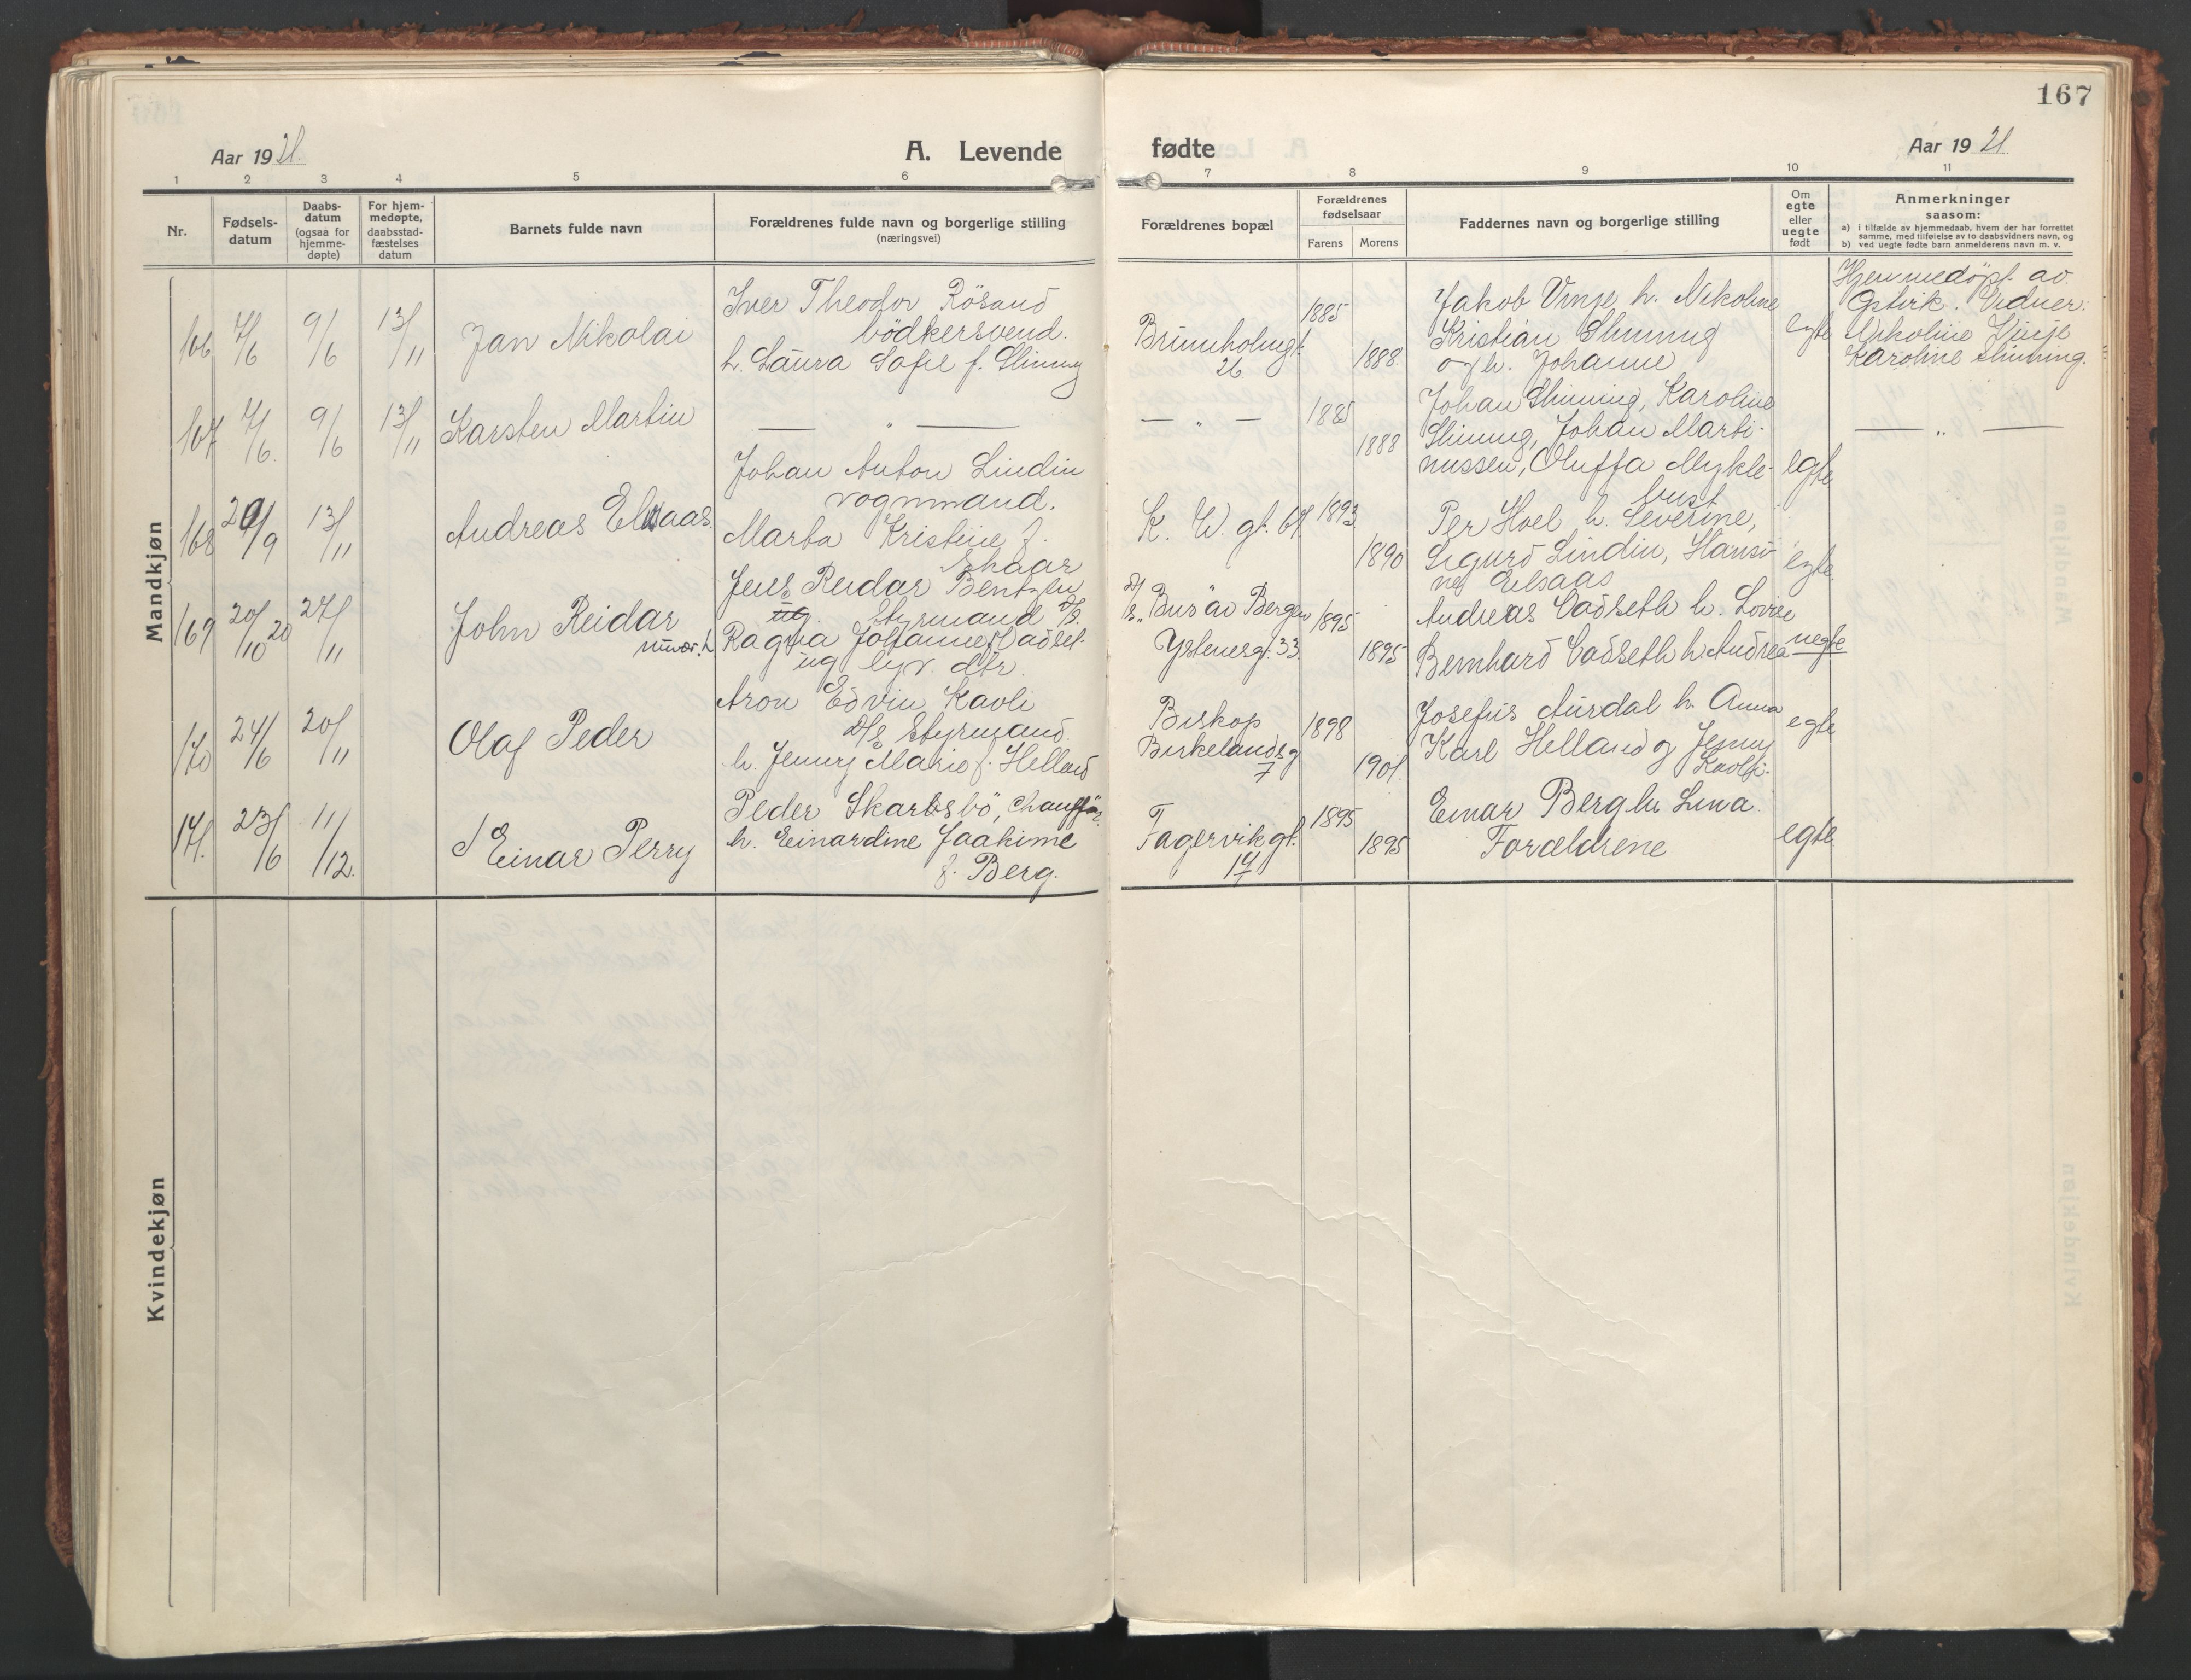 167
Aar 1921.
A. Levende
fødte
Aar 1921
1 2 3 4 5 6
7 8 9 10 11
Nr.
Fødsels-
datum
Daabs-
datum
(ogsaa for
hjemme-
døpte)
For hjem-
medøpte,
daabsstad-
fæstelses
datum
Barnets fulde navn
Forældrenes fulde navn og borgerlige stilling
(næringsvei)
Forældrenes bopæl
Forældrenes
fødselsaar
Farens
Morens
Faddernes navn og borgerlige stilling
Om
egte
eller
uegte
født
Anmerkninger
saasom:
a) i tilfælde av hjemmedaab, hvem der har forrettet
samme, med tilføielse av to daabsvidners navn, og
b) ved uegte fødte barn anmelderens navn m. v.
Mandkjøn
166 7/6 9/6 13/11 Jan Nikolai
Iver Theodor Rösand
bödkersvend.
h. Laura Sofie f. Slinning
Brunholmgt.
26
1885
1888.
Jakob Vinje h. Nikoline
Kristian Slinning
og h. Johanne
egte
Hjemmedöpt av
Gstvik. Vidner:
Nikoline Vinje
Karoline Slinning.
167 7/6. 9/6 13/11 Karsten Martin
— „ —
— „ —
1885
1888
Johan Slinning, Karoline
Slinning, Johan Marti-
nussen, Oluffa Mykle-
bust
egte
— „ —
168 20/9 13/11 Andreas Elsaas.
Johan Anton Lindin
vognmand.
Marta Kristine f.
K. W. gt. 67.
1893
1890
Per Hoel h. Severine,
Sigurd Lindin, Hansi-
ne Elsaas
egte
169 20/10 20 27/11 John Reidar
Jens Reidar Bentzen
ug. Styrmand
Ragna Johanne Vadset
ug
Bergen
Ystenesgt. 33.
1895
1895
Andreas Vadseth h. Lovise
Bernhard Vadseth h. Andrea
uegte
170 24/6 20/11 Olaf Peder
Aron Edvin Kavli
D/S Styrmand.
h. Jenny Marie f. Helland
Biskop
Birkelandsg
7
1898
1901.
Josefus Aurdal h. Anna
Karl Helland og Jenny
Kavli.
egte
171. 23/6 11/12. Einar Perry
Peder Skarbsbö, Chaufför.
h. Einardine Jaakime
f. Berg.
Fagervikgt.
17
1895
1895
Einar Berg h. Lina.
Forældrene
egte
Kvindekjøn